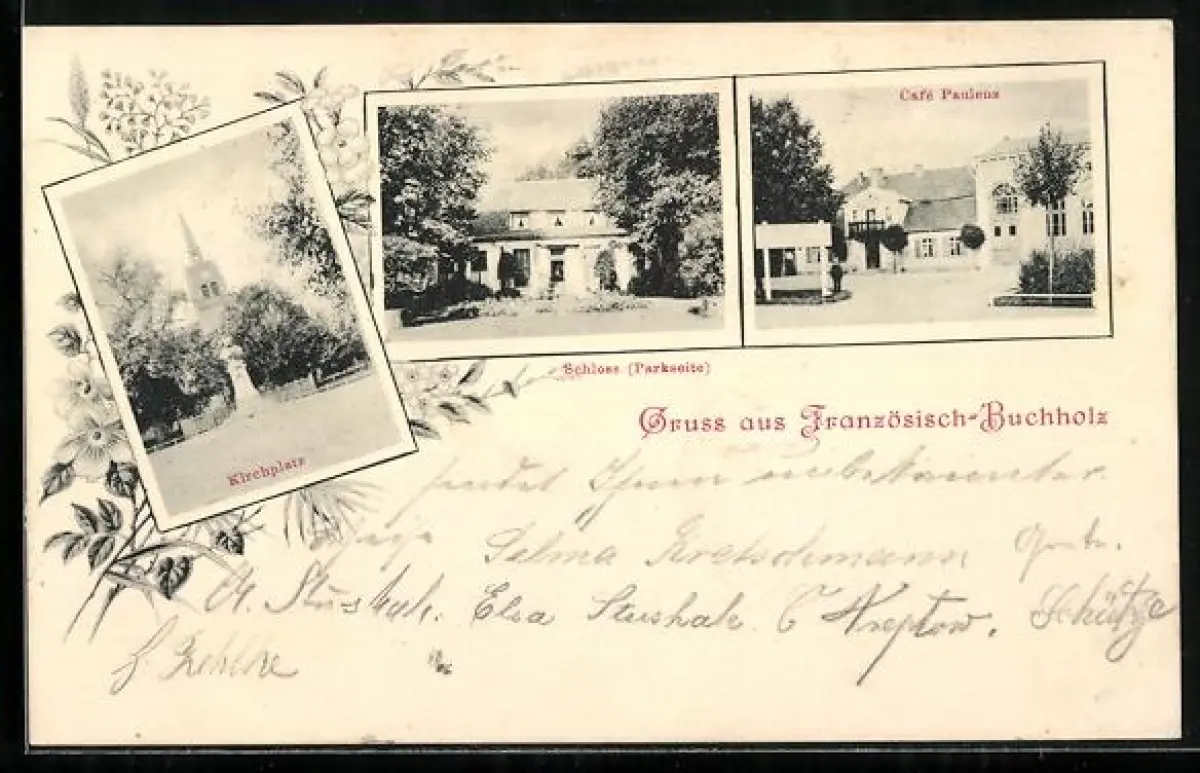 Café Paulenz
Kirchplatz
Schloss (Parkseite)
Gruss aus Französisch-Buchholz
sendet Ihnen unbekannter
Selma Kretschmann
Elsa Stushak. C Treptow. Schütze